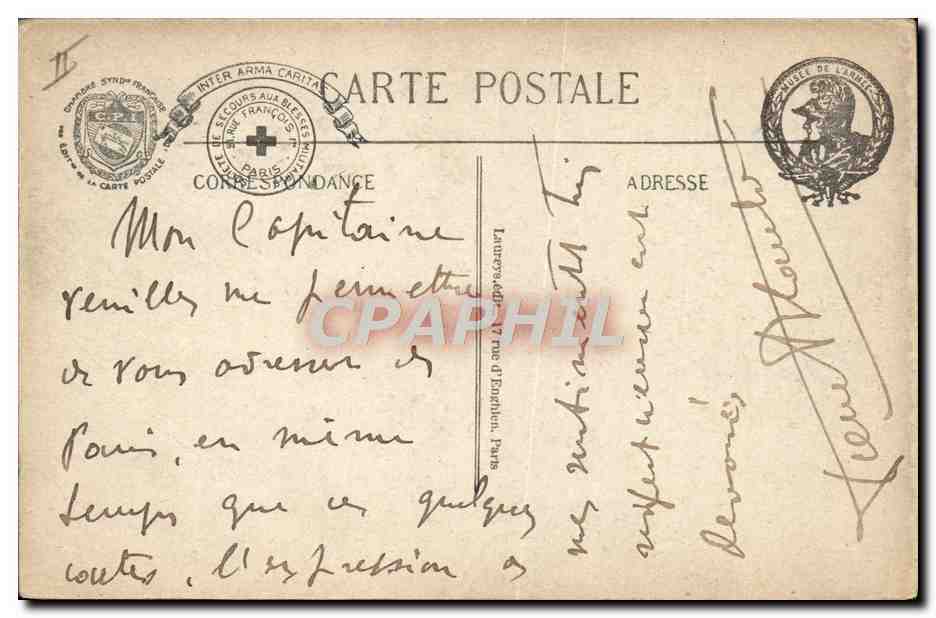 II
CHAMBRE SYND^LE FRANÇAISE
C.P.I.
DE LA CARTE POSTALE
INTER ARMA CARITAS
SOCIÉTÉ DE SECOURS AUX BLESSÉS MILITAIRES
RUE FRANÇOIS I^er
PARIS
CARTE POSTALE
MUSÉE DE L'ARMÉE
CORRESPONDANCE
ADRESSE
Mon Capitaine
veuillez me permettre
de vous adresser de
Paris, en même
temps que ces quelques
cartes, l'expression de
mes sentiments très
respectueusement
dévoués
Pierre
Laureys, édit. 17 rue d'Enghien, Paris
CPAPHIL